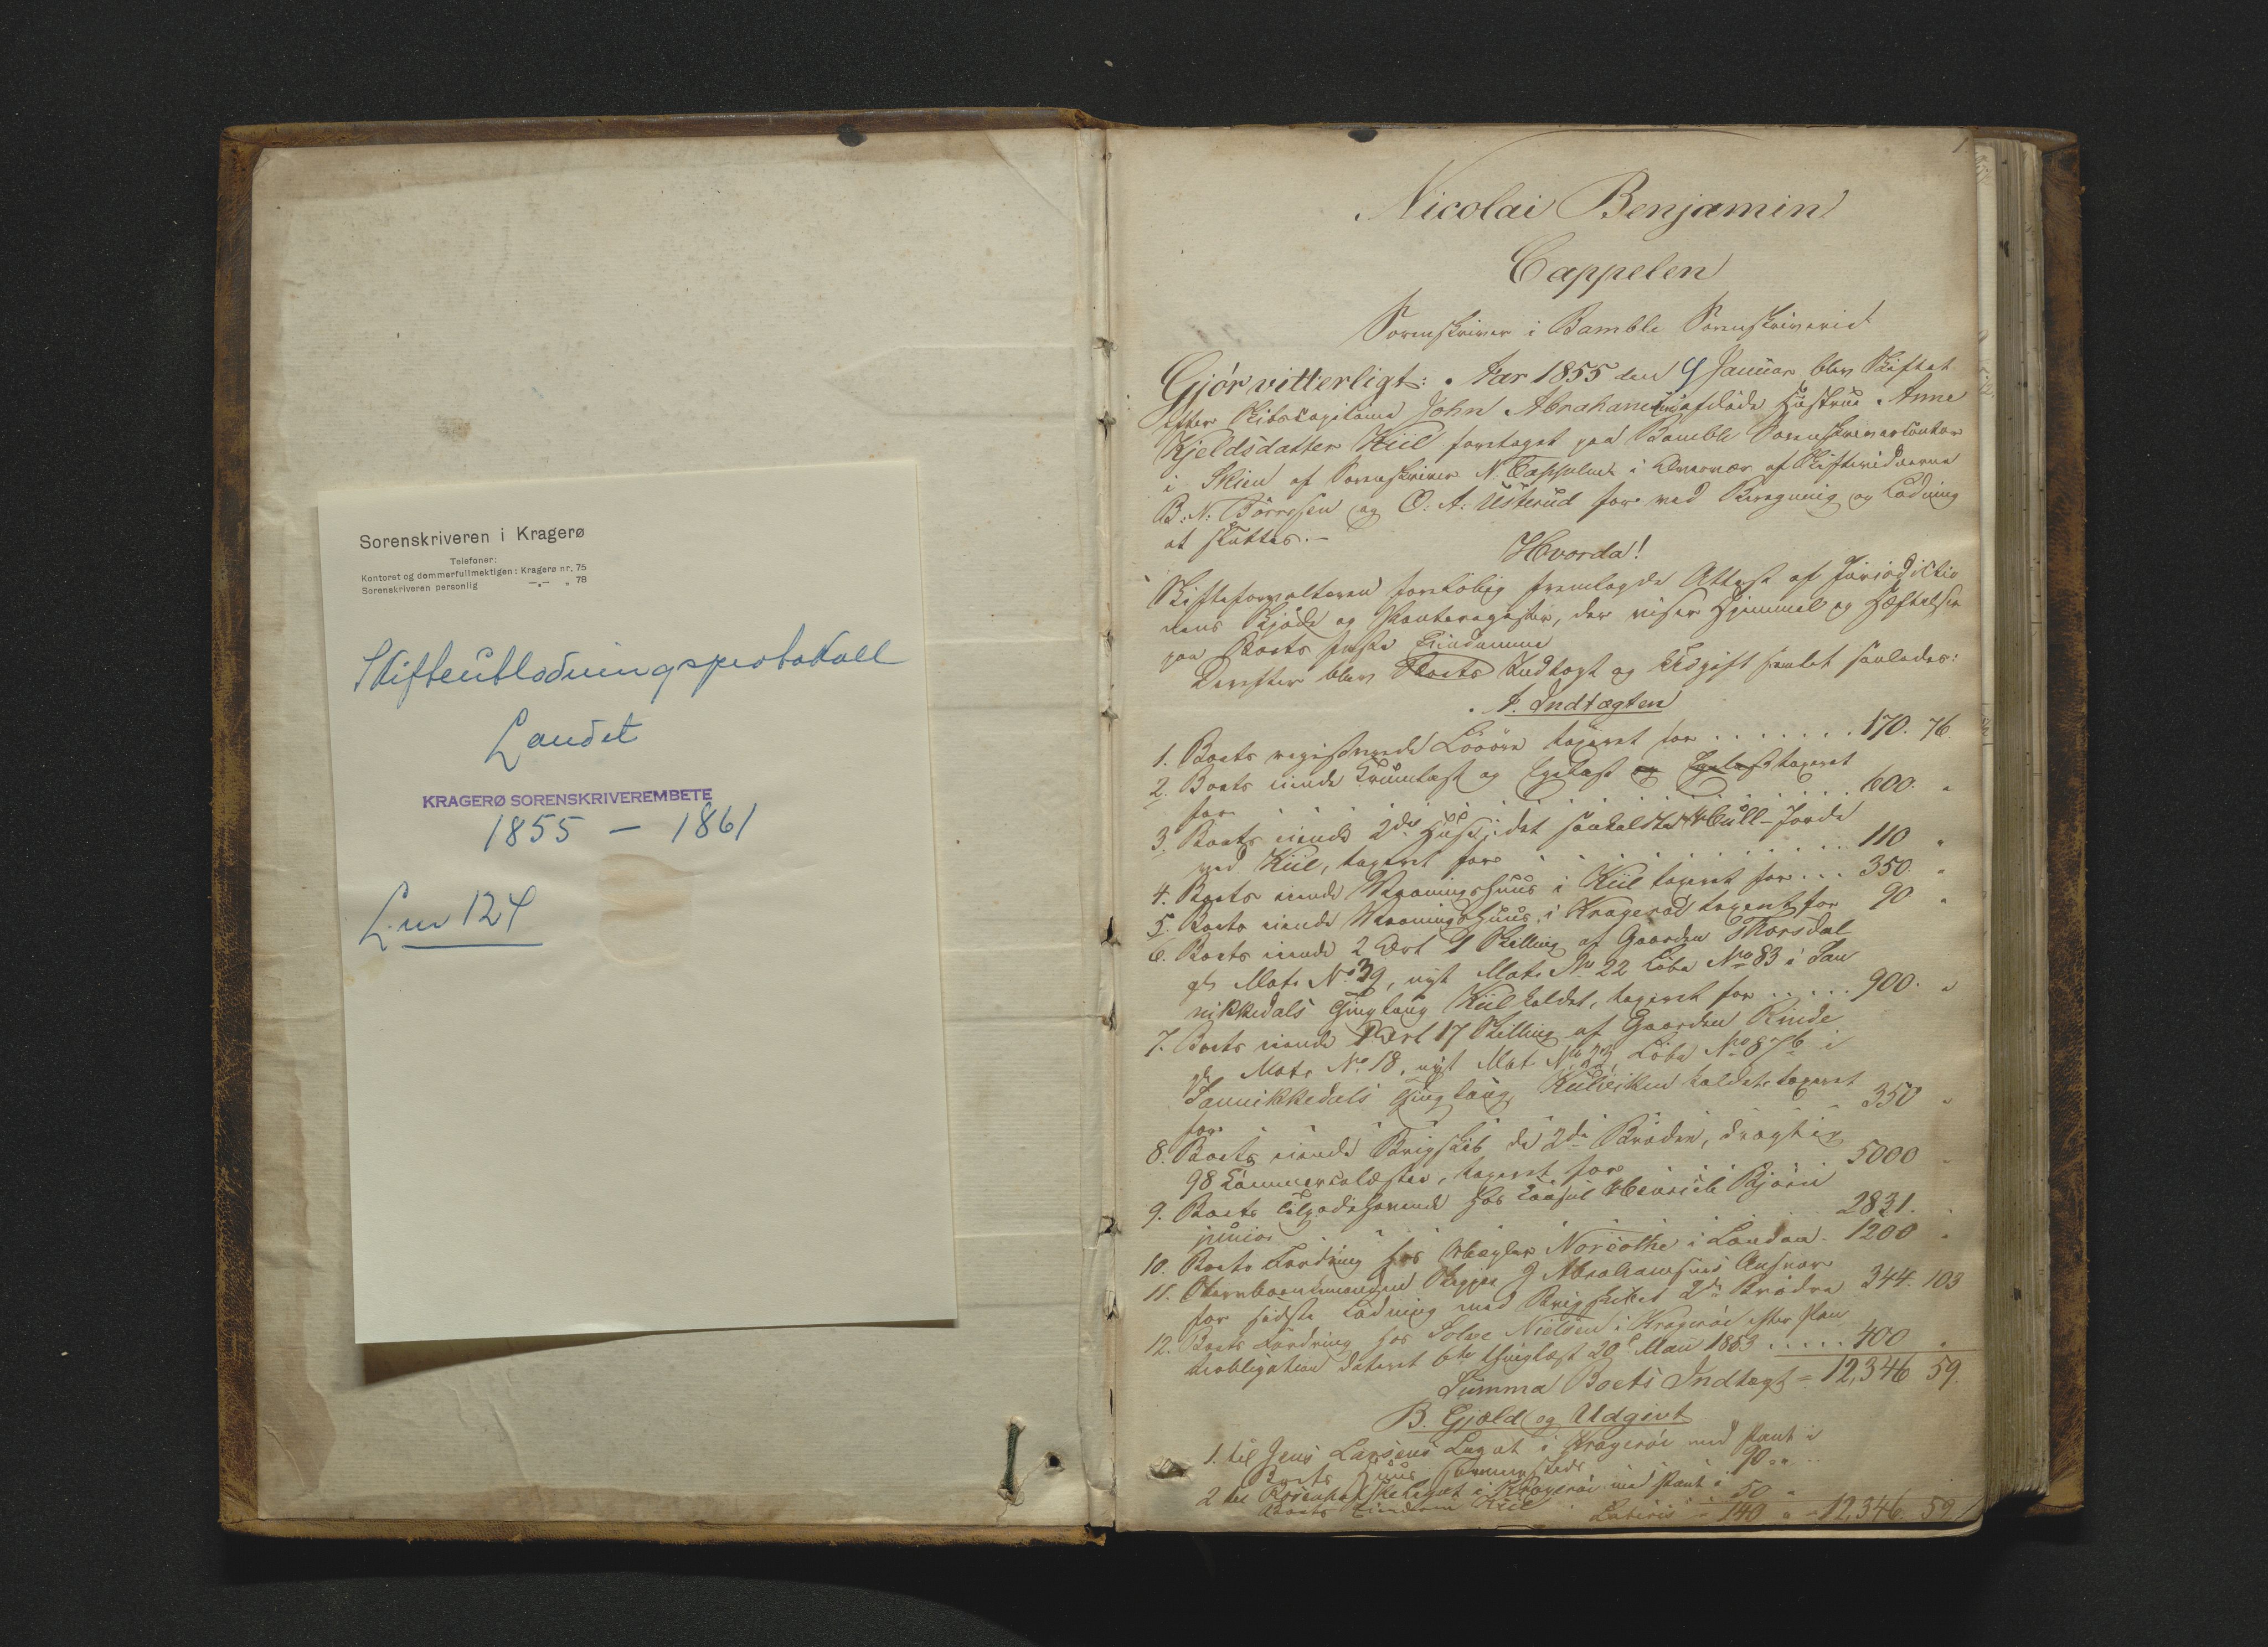 Sorenskriveren i Kragerø
Telefoner:
Kontoret og dommerfullmektigen: Kragerø nr. 75
Sorenskriveren personlig —„— „ 78
Skifteutlodningsprotokoll
Landet
KRAGERØ SORENSKRIVEREMBETE
1855 – 1861
L.nr 124
1
Nicolai Benjamin
Cappelen
Sorenskriver i Bamble Sorenskriverie
Gjör vitterligt: Aar 1855 den 9 Januar blev Skiftet
efter Skibscapitaine John Abrahamsens afdöde Hustrue Anne
Kjeldsdatter Kiil foretaget paa Bamble Sorenskrivercontor
i Skien af Sorenskriver N Cappelen i Overvær af Skiftevidnerne
B: N: Törresen og O: A: Usterud for ved Beregning og Lodning
at sluttes.–
Hvorda!
Skifteforvalteren foreløbig fremlagde Attest af Jurisdictio
nens Skjøde og Panteregister, der viser Hjemmel og Hæftelser
paa Boets faste Eiendomme
Derefter blev Boets Indtægt og Udgift samlet saaledes:
A. Indtægten
1. Boets registrerede Lösöre taxeret for . . . . . . . 170. 76.
2. Boets eiende Trumlast og Egelast og Egelast taxeret
for . . . . . . . 600. "
3. Boets eiende 2de Huse i det saakaldte Hull-Jorde
ved Kiil, taxeret for . . . . . . . 110 "
4. Boets eiende Vaaningshuus i Kiil taxeret for . . . 350. "
5. Boets eiende Vaaningshuus i Kragerøe taxeret for 90 "
6. Boets eiende 2 Ort 4 Skilling af Gaarden Thorsdal
gl. Mat. No 39, nyt Mat. No 22 Løbe No 83 i San
nikkedals Thinglaug Kiil kaldet, taxeret for . . . . . 900. "
7. Boets eiende 1 Ort 17 Skilling af Gaarden Rinde
gl. Mat. No 18, nyt Mat. No 23, Løbe No 87b i
Sannikkedals Thinglaug, kaldet, taxeret
for 350 "
8. Boets eiende Brigskib de 2de Brødre, drægtig
98 Commercelæster, taxeret for 5000 "
9. Boets Tilgodehavende hos Consul Henrich Bjørn
junior 2831. "
10. Boets Fordring hos Mægler Norcothe i London 1200 "
11. Skipper J Abrahamsens Ansvar
for sidste Ladning med Brigskibet 2de Brødre 344. 103
12. Boets Fordring hos Solve Nielsen i Kragerøe efter Pan
teobligation dateret 6te thinglæst 20de Mai 1853 . . . . . 400 "
Summa Boets Indtægt = 12,346 59.
B. Gjæld og Udgivt
1. til Jens Larsens Legat i Kragerøe med Pant i
Boets Huus sammesteds 90 " "
2 til i Kragerøe med Pant i
Boets Eiendom Kiil 50 "
Lateris = 140 " = 12,346. 59